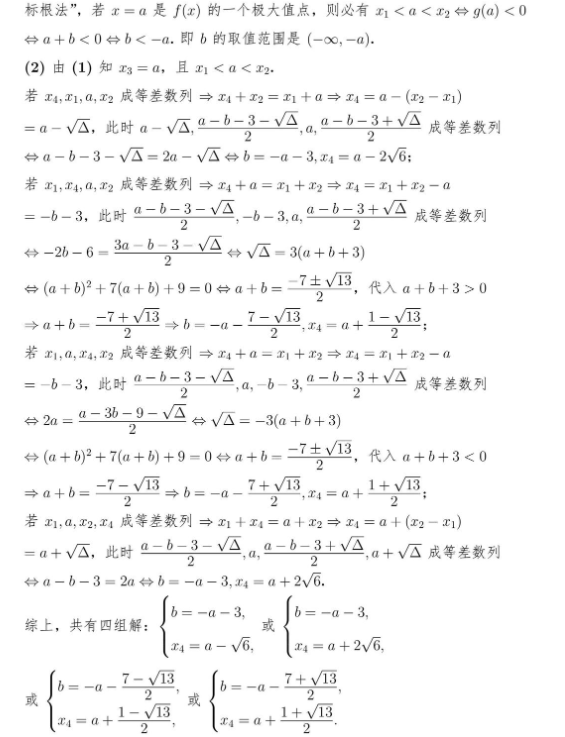 标根法”，若 x = a 是 f(x) 的一个极大值点，则必有 x₁ < a < x₂ ⇔ g(a) < 0
⇔ a + b < 0 ⇔ b < −a. 即 b 的取值范围是 (−∞, −a).
(2) 由 (1) 知 x₃ = a，且 x₁ < a < x₂.
若 x₄, x₁, a, x₂ 成等差数列 ⇒ x₄ + x₂ = x₁ + a ⇒ x₄ = a − (x₂ − x₁)
= a − √Δ，此时 a − √Δ, (a − b − 3 − √Δ)/2, a, (a − b − 3 + √Δ)/2 成等差数列
⇔ a − b − 3 − √Δ = 2a − √Δ ⇔ b = −a − 3, x₄ = a − 2√6;
若 x₁, x₄, a, x₂ 成等差数列 ⇒ x₄ + a = x₁ + x₂ ⇒ x₄ = x₁ + x₂ − a
= −b − 3，此时 (a − b − 3 − √Δ)/2, −b − 3, a, (a − b − 3 + √Δ)/2 成等差数列
⇔ −2b − 6 = (3a − b − 3 − √Δ)/2 ⇔ √Δ = 3(a + b + 3)
⇔ (a + b)² + 7(a + b) + 9 = 0 ⇔ a + b = (−7 ± √13)/2，代入 a + b + 3 > 0
⇒ a + b = (−7 + √13)/2 ⇒ b = −a − (7 − √13)/2, x₄ = a + (1 − √13)/2;
若 x₁, a, x₄, x₂ 成等差数列 ⇒ x₄ + a = x₁ + x₂ ⇒ x₄ = x₁ + x₂ − a
= −b − 3，此时 (a − b − 3 − √Δ)/2, a, −b − 3, (a − b − 3 + √Δ)/2 成等差数列
⇔ 2a = (a − 3b − 9 − √Δ)/2 ⇔ √Δ = −3(a + b + 3)
⇔ (a + b)² + 7(a + b) + 9 = 0 ⇔ a + b = (−7 ± √13)/2，代入 a + b + 3 < 0
⇒ a + b = (−7 − √13)/2 ⇒ b = −a − (7 + √13)/2, x₄ = a + (1 + √13)/2;
若 x₁, a, x₂, x₄ 成等差数列 ⇒ x₁ + x₄ = a + x₂ ⇒ x₄ = a + (x₂ − x₁)
= a + √Δ，此时 (a − b − 3 − √Δ)/2, a, (a − b − 3 + √Δ)/2, a + √Δ 成等差数列
⇔ a − b − 3 = 2a ⇔ b = −a − 3, x₄ = a + 2√6.
综上，共有四组解：{b = −a − 3, x₄ = a − √6, 或 {b = −a − 3, x₄ = a + 2√6,
或 {b = −a − (7 − √13)/2, x₄ = a + (1 − √13)/2, 或 {b = −a − (7 + √13)/2, x₄ = a + (1 + √13)/2.